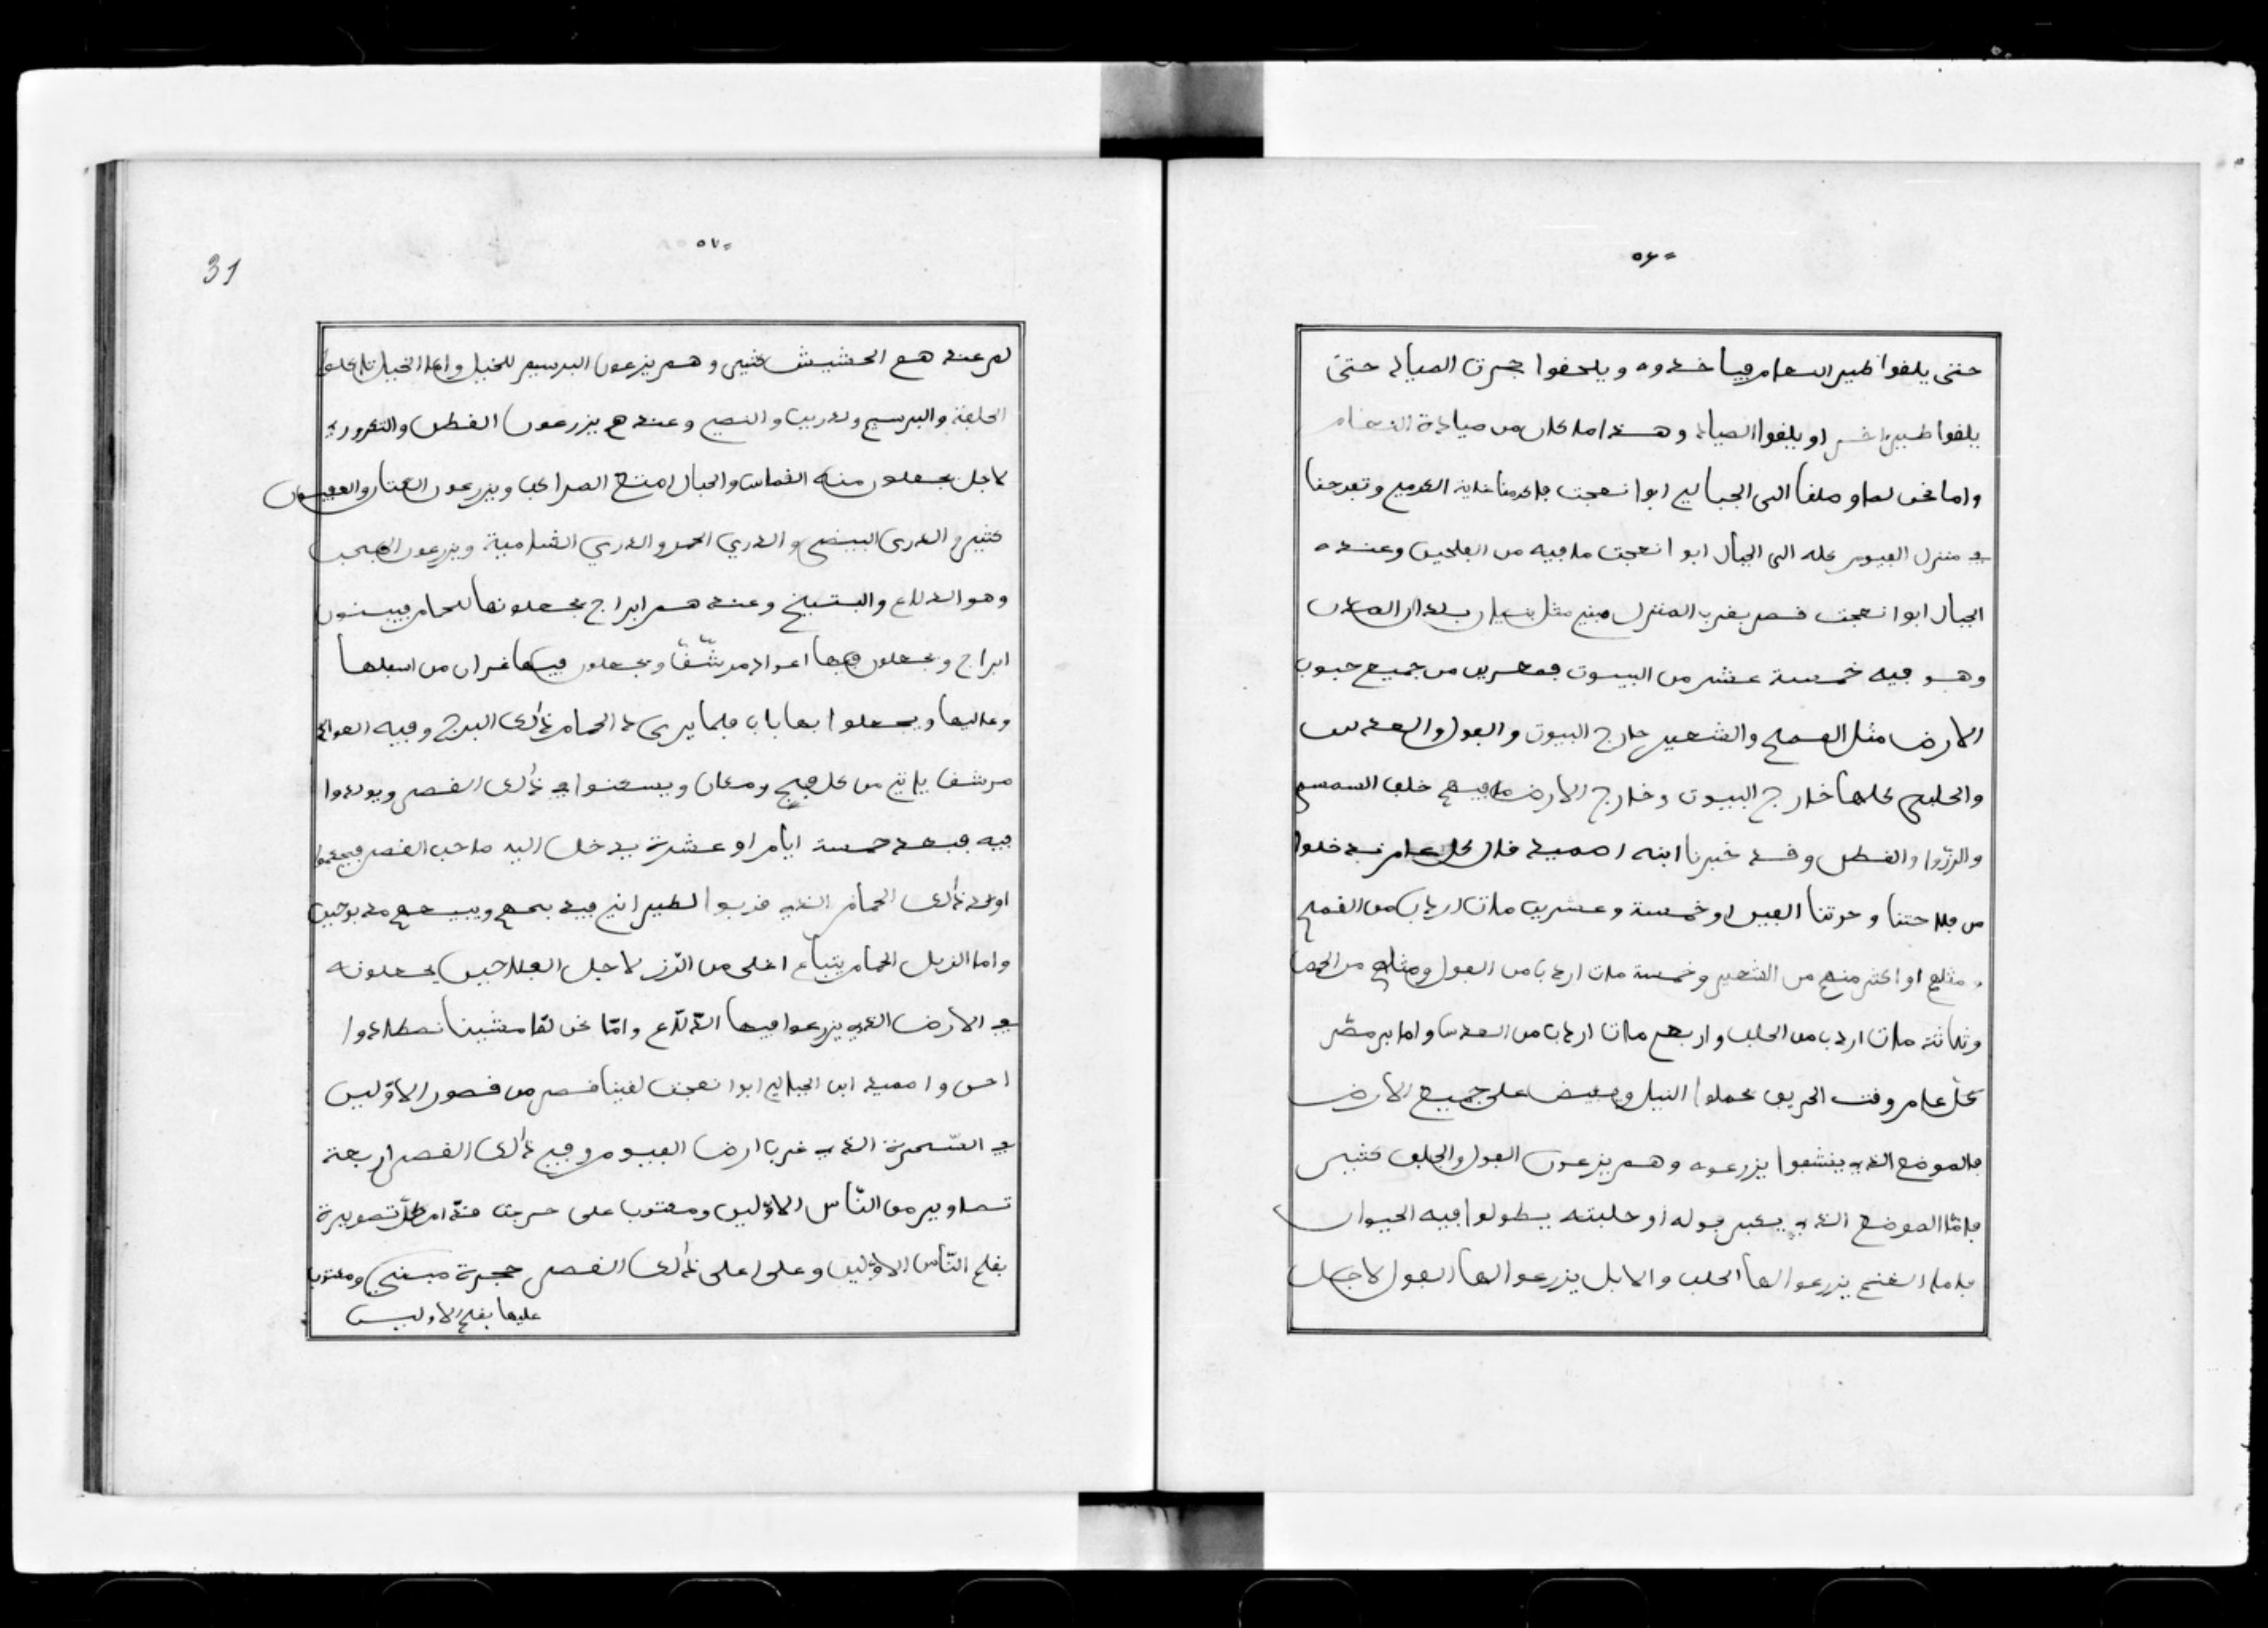 ٥٦
حتى يلقوا طير النعام فياخذوه ويلحقوا جرت الصياد حتى
يلقوا طير اخر او يلقوا الصياد وهذا ما كان من صيادة النعام
واما نحن لما وصلنا الى الجبالي ابوا نعجت فاكرمنا غاية الكرم وتفرجنا
في منزل الفيوم كله الى الجبال ابوا نعجت ما فيه من الفلحين وعنده
الجبال ابوا نعجت قصر بقرب المنزل مبني مثل
وهو فيه خمسة عشر من البيوت من جميع حبوب
الارض مثل القمح والشعير خارج البيوت والفول والعدس
والحلبه كلها خارج البيوت وخارج الارض ما فيهم خلف السمسم
والرّزوا والقطن وقد خبرنا ابنه احميد قال كل عام ندخلوا
من فلاحتنا وحرتنا الفين او خمسة وعشرين مات اردب من القمح
ومثلهم او اكثر منهم من الشعير وخمسة مات اردب من الفول ومثلهم من الحمص
وثلاثة مات اردب من الحلب واربع مات اردب من العدس واما بر مصر
كل عام وقت الخريف يحملوا النيل ويفيض على جميع الارض
فالموضع الذي ينشفوا يزرعوه وهم يزرعون الفول والحلب كثير
فامّا الموضع الذي يكبر فوله او حلبته يطولوا فيه الحيوان
فاما الغنم يزرعوا لها الحلب والابل يزرعوا لها الفول لاجل
٥٧
31
لم عندهم الحشيش كثير وهم يزرعون البرسيم للخيل واما الخيل تاكلوا
الحلبة والبرسيم والدريس والنصي وعندهم يزرعون القطن والتكروري
لاجل يجعلون منه القماش والحبال امتع المراكب ويزرعون الكتان
كثير والدرى البيض والدري الحمر والدري الشامية ويزرعون
وهو الدلاع والبتيخ وعندهم ابراج يجعلونها للحمام فيبنون
ابراج ويجعلون فيها اعواد مرشّقا ويجعلون فيها غيران من اسفلها
وعاليها ويجعلوا بها باب فلما يرى د الحمام ذالك البرج وفيه العواد
مرشف ياتي من كل فج ومكان ويسكنوا في ذالك القصر ويولدوا
فيه فبعد خمسة ايام او عشرة يدخل اليه صاحب القصر
اولاد ذالك الحمام الذي قربوا لطيران فيدبحهم ويبيعهم مدبوحين
واما الزبل الحمام يتباع اغلى من الرّز لاجل الفلاحين يجعلونه
في الارض الذي يزرعوا فيها الدّلّاع وامّا نحن لمّا مشينا نصطادوا
احن واحميد ابن الجبالي ابوا نعجت لقينا قصر من قصور الاوّلين
في السّمرة الذي غرب ارض الفيوم وفي ذالك القصر اربعة
تصاوير من النّاس الاوّلين ومكتوب على حرجت قدّام كل تصويرة
بقلم النّاس الاوّلين وعلى اعلى ذالك القصر حجرة مبنيي ومكتوب
عليها بقلم الاولين